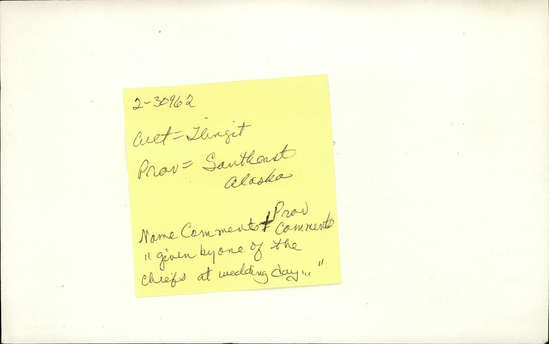 2-30962
Cult = Tlingit
Prov = Southeast
Alaska
Name Comments + Prov
Comments
"given by one of the
chiefs at wedding day..."